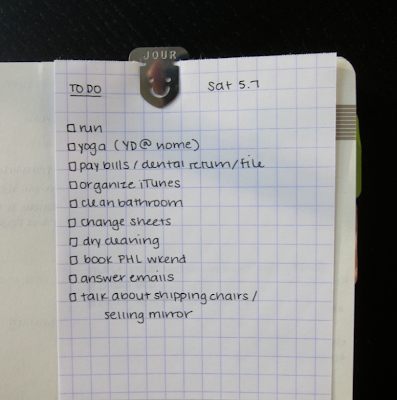 JOUR
TO DO
sat 5.7
run
yoga (YD @ home)
pay bills / dental return/file
organize iTunes
clean bathroom
change sheets
dry cleaning
book PHL wkend
answer emails
talk about shipping chairs /
selling mirror